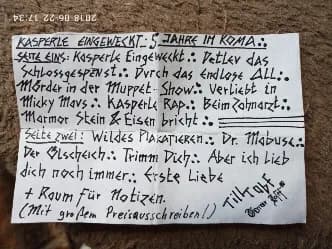 2018 06 22 17:34
KASPERLE EINGEWECKT ∴ 5 JAHRE IM KOMA ∴
SEITE EINS: Kasperle Eingeweckt ∴ Detlev das
Schlossgespenst ∴ Durch das endlose All ∴
Mörder in der Muppet-Show ∴ Verliebt in
Micky Maus ∴ Kasperle Rap ∴ Beim Zahnarzt ∴
Marmor Stein & Eisen bricht ∴
Seite zwei: Wildes Plakatieren ∴ Dr. Mabuse ∴
Der Ölscheich ∴ Trimm Dich ∴ Aber ich lieb
dich noch immer ∴ Erste Liebe
+ Raum für Notizen.
(Mit großem Preisausschreiben!)